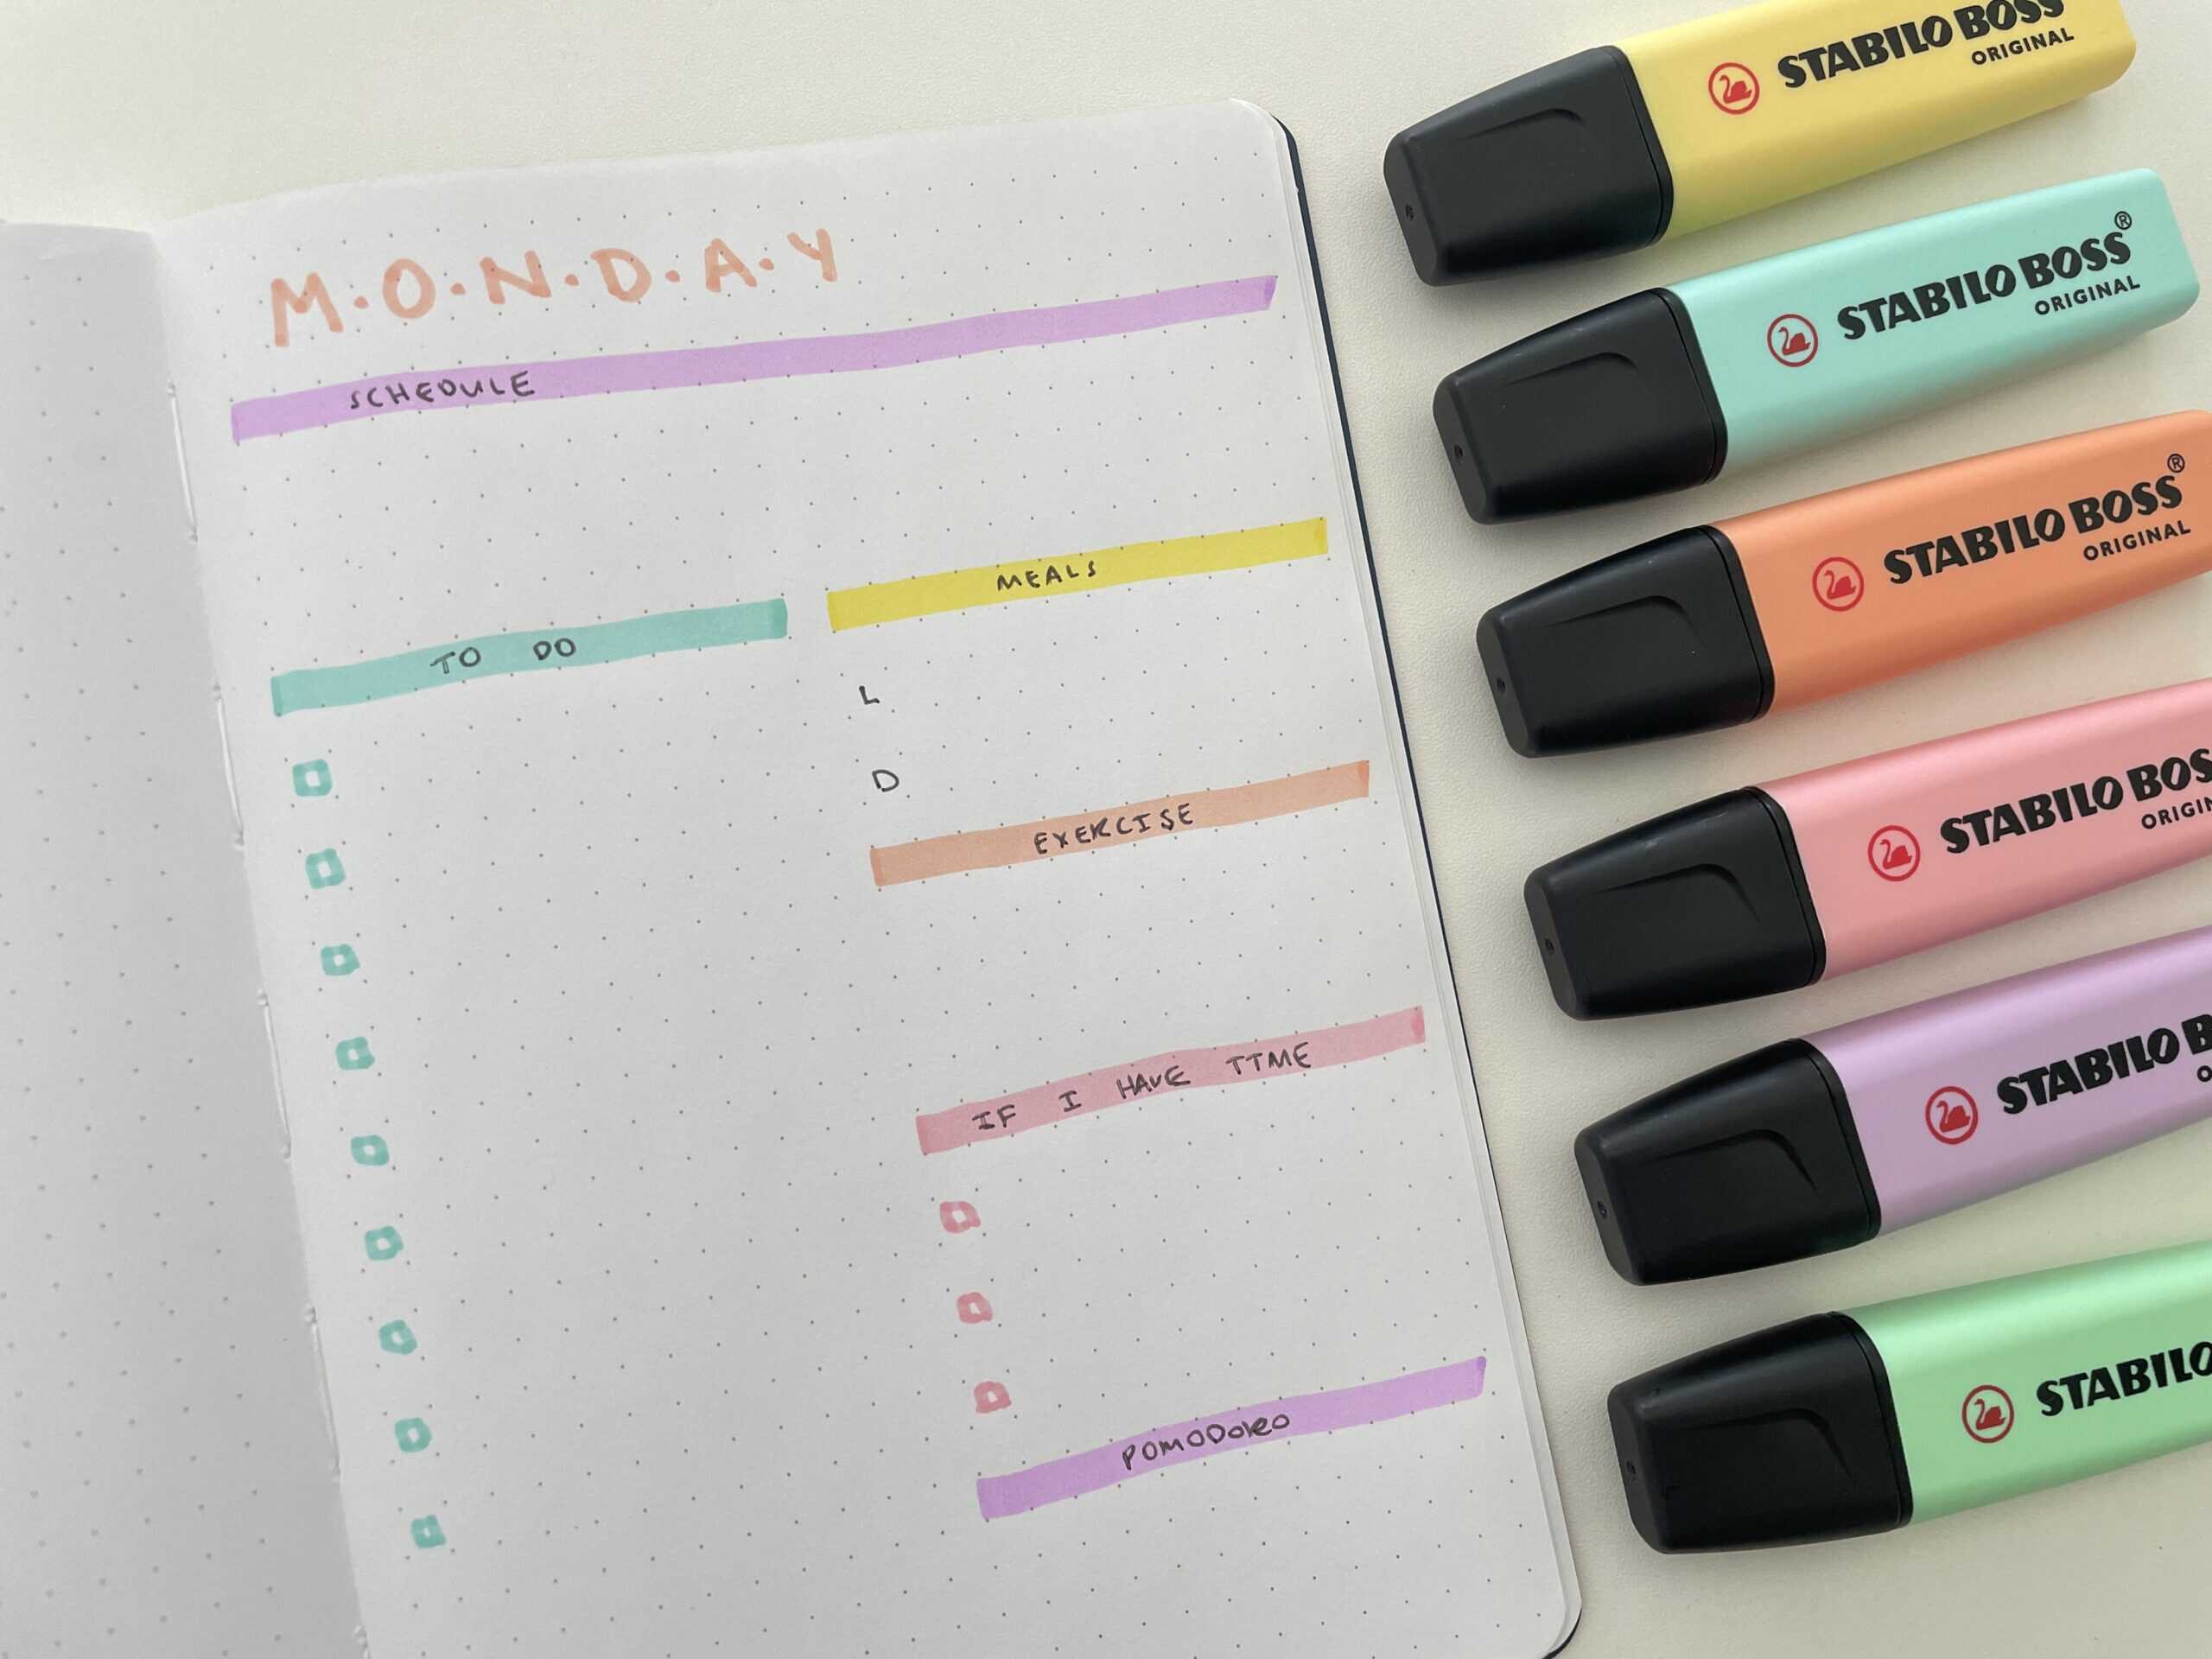 M.O.N.D.A.Y
SCHEDULE
TO DO
MEALS
L
D
EXERCISE
IF I HAVE TIME
POMODORO
STABILO BOSS
ORIGINAL
STABILO BOSS®
ORIGINAL
STABILO BOSS®
ORIGINAL
STABILO BOS
ORIGIN
STABILO B
O
STABILO